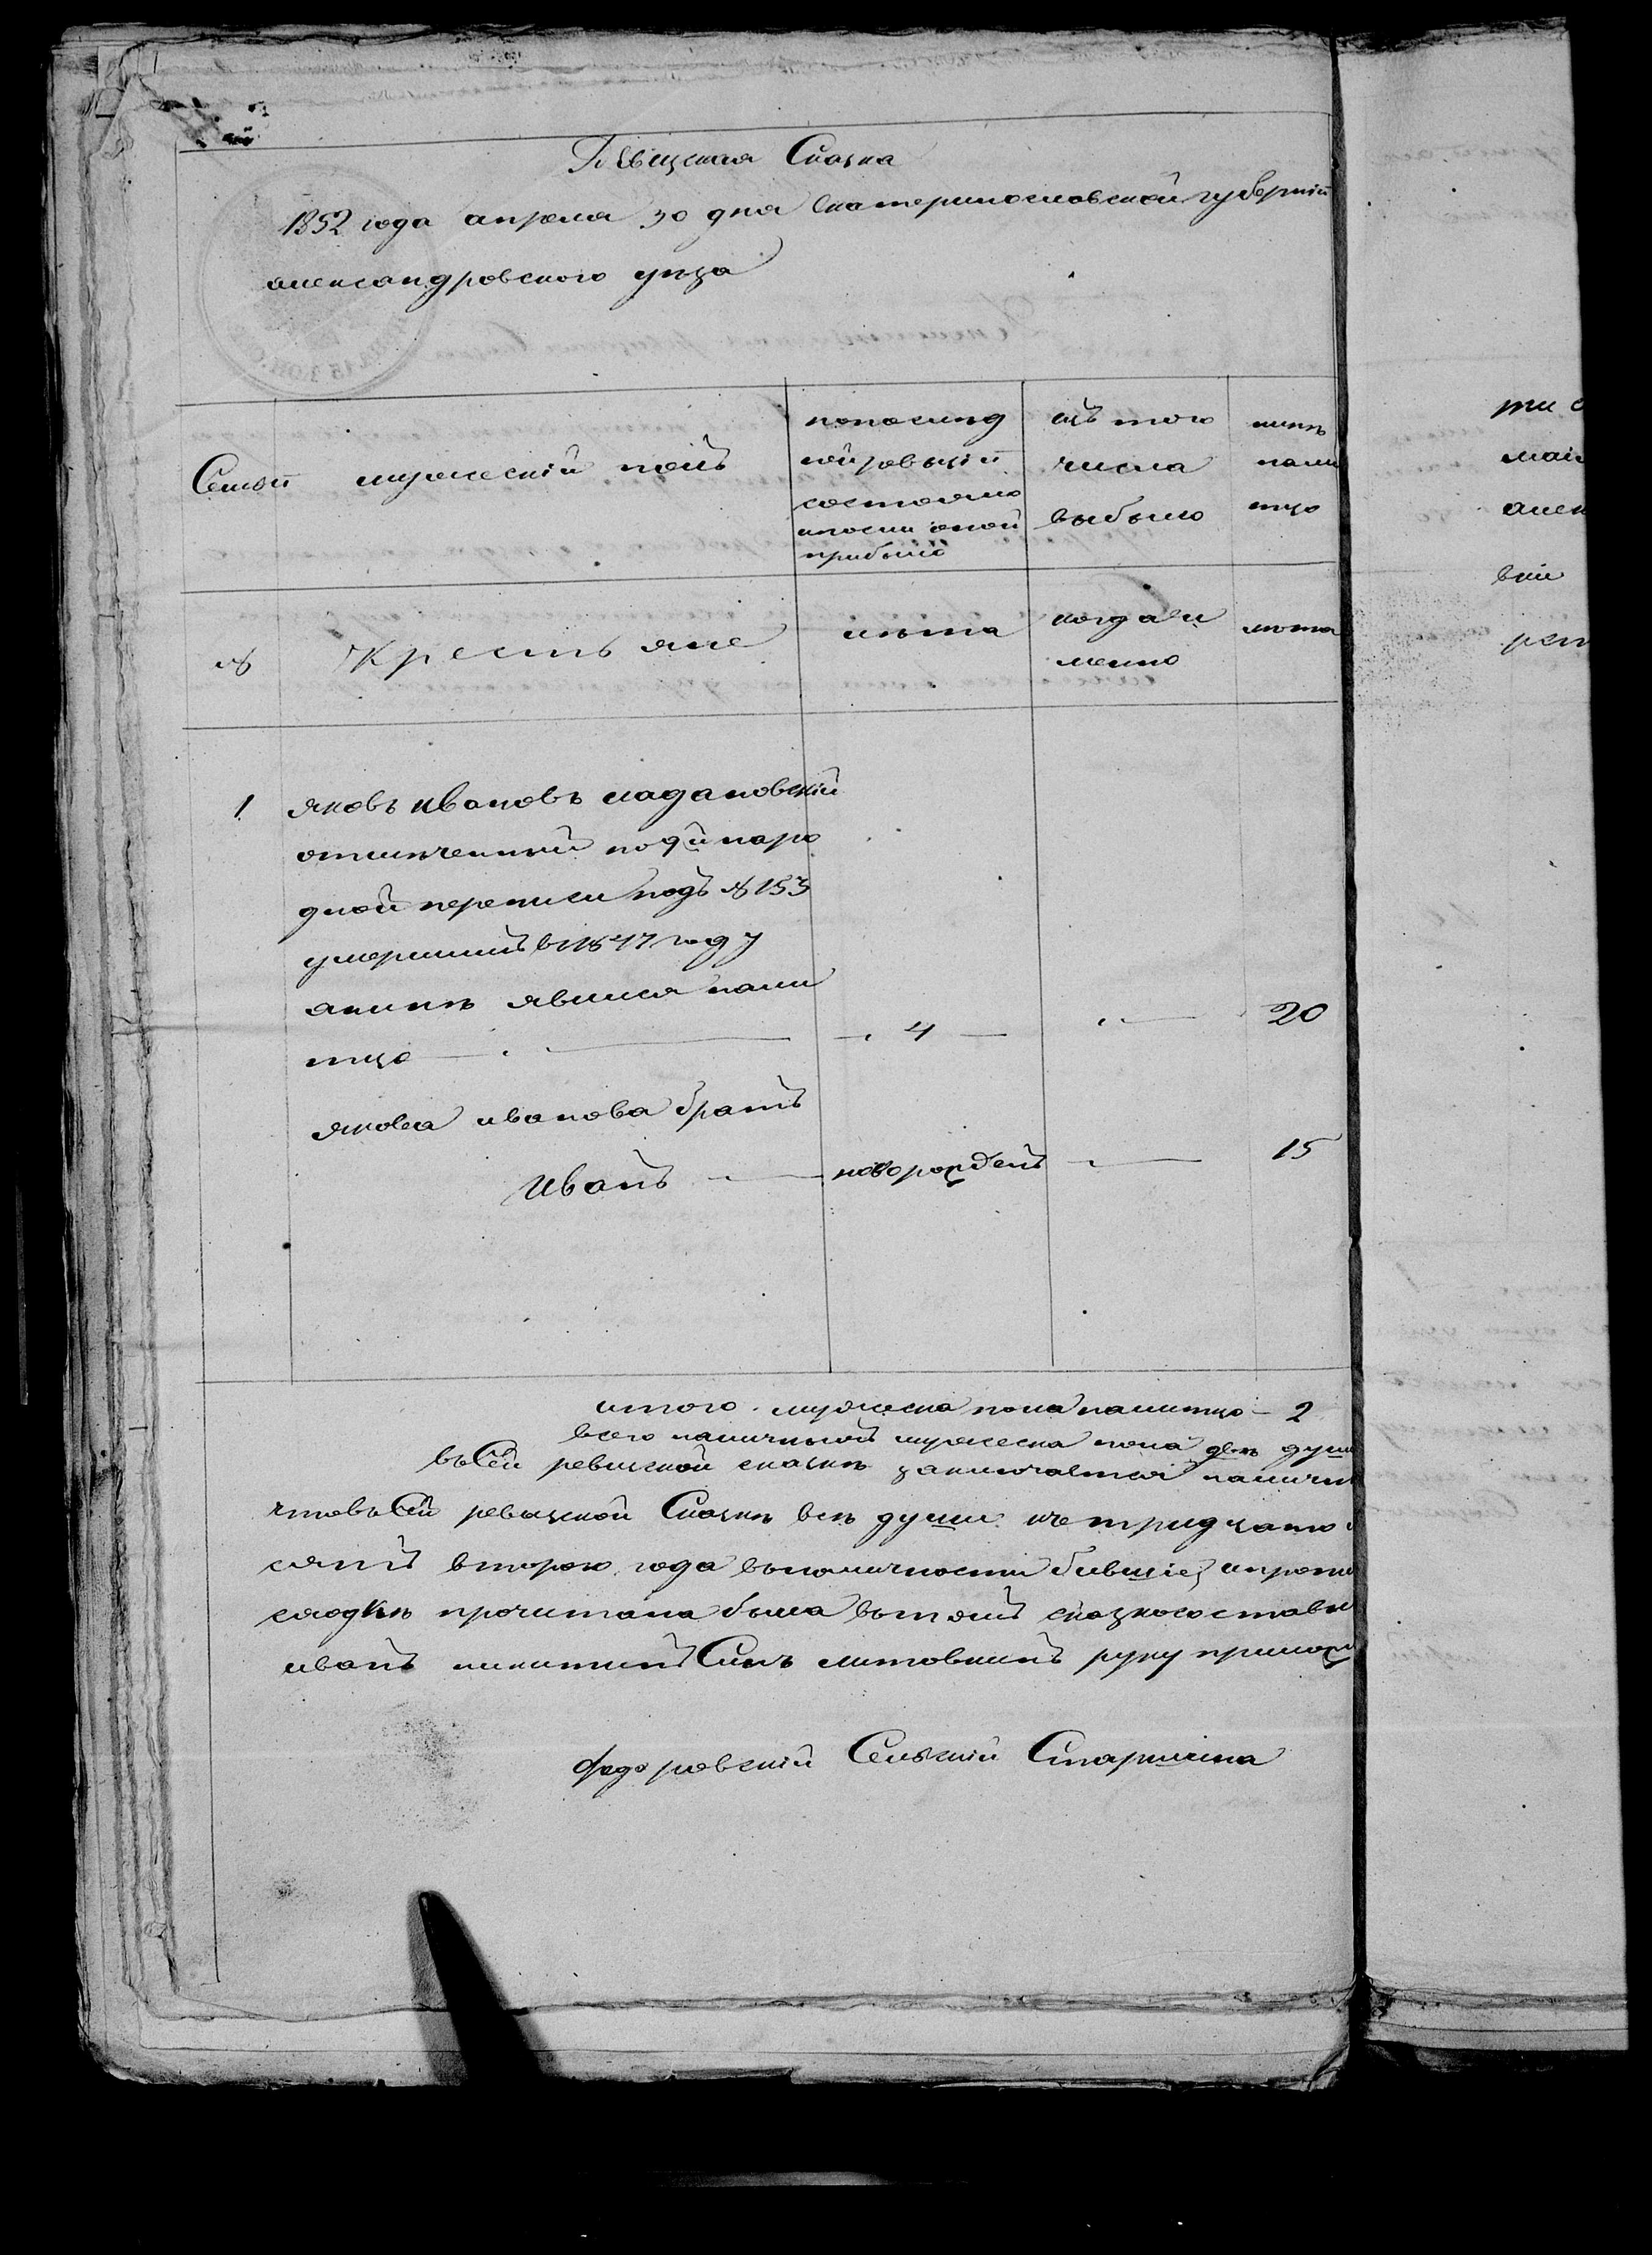 Ревизская Сказка
1852 года апреля 30 дня Екатеринославской губерніи
александровского уезда
Семьи
мужескій полъ
попослед
ней ревызіи
состояло
ипосли оной
прибыло
изъ того
числа
выбыло
ныне
нали
тцо
№
Крестьяне
лета
когда и
менно
лета
1
яковъ ивановъ надановскій
отмеченный по 9й наро
дной переписи подъ № 153
умершимъ в 1847 году
аныне явился нали
тцо
4
20
якова иванова братъ
иванъ
новорожденъ
15
итого мужеска пола налитцо 2
всего наличныхъ мужеска пола две душ
въСей ревизской сказке заключается налич
чтовъСей ревызской Сказке все души
сятъ второго года въналичности бывшіе,
сходке прочитана была вътомъ сказкосостав
иванъ никитинъ Синъ литовкинъ руку прилож
федоровскій Сельскій Старшина
ри с
маі
алек
рев